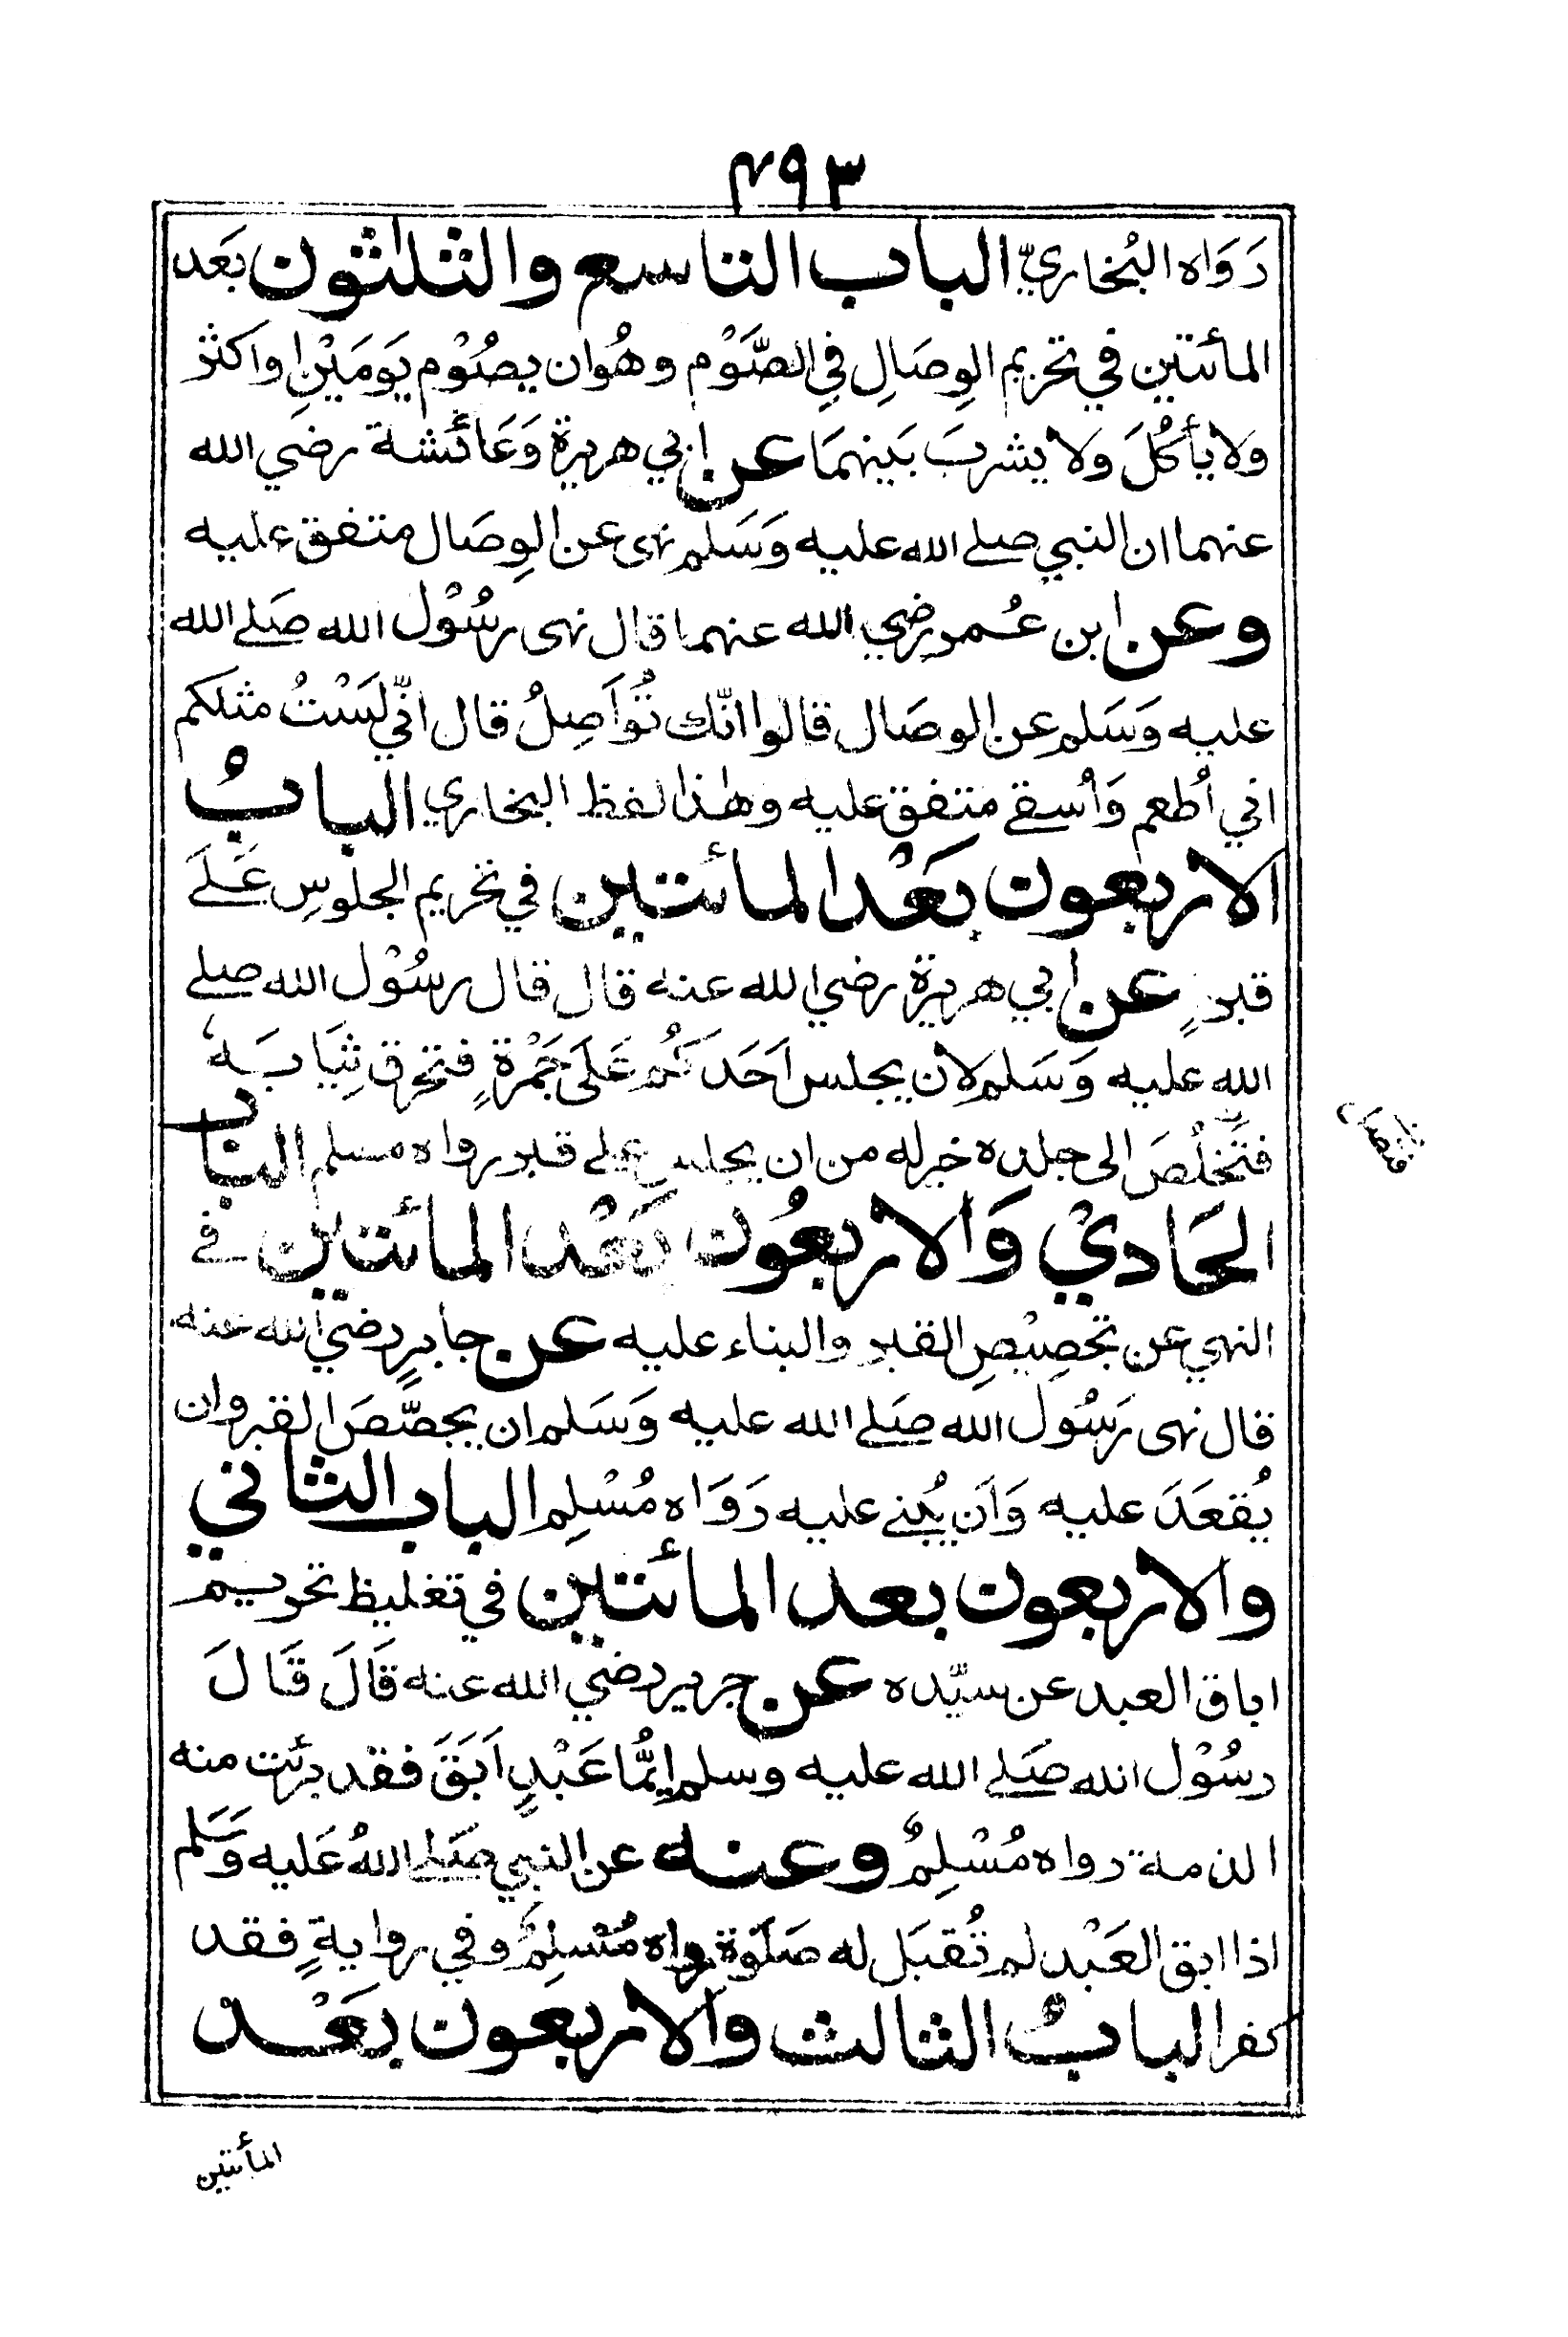 ٤٩٣
رَوَاه البُخاريّ الباب التاسع والثلثون بَعَد
المأئتين في تحريم الوِصَالِ فِي الصَّوْم وهُوان يصُوْم يَومَيْنِ اواكثر
ولايأكُلَ ولا يشربَ بَينهمَا عن ابي هريرة وَعَائشة رضي الله
عنهما ان النبي صلے الله عليه وَسَلم نهى عن الوِصَال متفق عليه
وعن ابن عُمر رضي الله عنهما قال نهى رسُوْل الله صَلے الله
عليه وَسَلم عن الوصَال قالوا انّك تُوَاصِلُ قال انّي لَسْتُ مثلكم
اني اُطعم وَاُسقے متفق عليه وهٰذا لفظ البخاري البابُ
الاربعون بَعْد المائتين في تحريم الجلوسِ عَلَے
قبرٍ عن ابي هريرة رضي الله عنه قال قال رسُوْل الله صلے
الله عليه وَسَلم لان يجلس اَحَدكُم عَلَى جَمْرةٍ فتحرق ثِيَابَهٗ
فتَخْلُصَ الى جلده خير له من ان يجلس علے قبر رواه مسلم الباب
الحَادِيْ وَالاربعُون بَعْد المائتين فے
النهي عن تجصِيْصِ القبر والبناء عليه عن جابرٍ رضي الله عنه
قال نهى رَسُول الله صَلے الله عليه وَسَلم ان يجصَّصَ القبر وان
يُقعَدَ عليه وَاَن يُبنے عليه رَوَاه مُسْلِم الباب الثاني
والاربعون بعد المائتين في تغليظ تحريم
اباق العبد عن سيّده عن جرير رضي الله عنه قَالَ قَالَ
رسُوْل الله صَلے الله عليه وسلم ايُّمَا عَبْدٍ اَبَقَ فقد برئت منه
الذمة رواه مُسْلِمٌ وعنه عن النبي صَلے اللهُ عَليه وَسَلم
اذا ابق العَبْد لم تُقبَل له صَلٰوة رواه مُسْلِمٌ وفي روايةٍ فقد
كفر البابُ الثالث وَالاربعون بَعْد
المأئتين